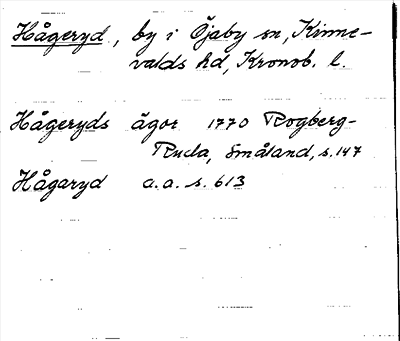 Hågeryd, by i Öjaby sn, Kinne-
valds hd, Kronob. l.
Hågeryds ägor 1770 Rogberg-
Ruda, Småland, s. 147
Hågaryd a.a. s. 613